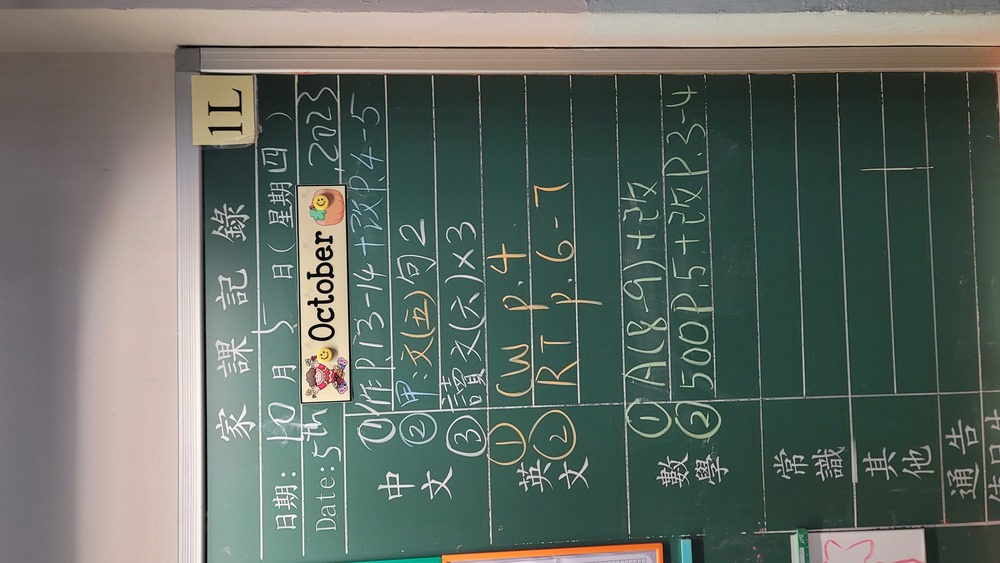 1L
家課記錄
日期: 10月5日(星期四)
Date: 5th October, 2023
中文
① 作P.13-14+改P.4-5
② 甲:文(五)句2
③ 讀文(六)×3
英文
① CW p.4
② RT p.6-7
數學
① A(8-9)+改
② 500P.5+改P.3-4
常識
其他
通告